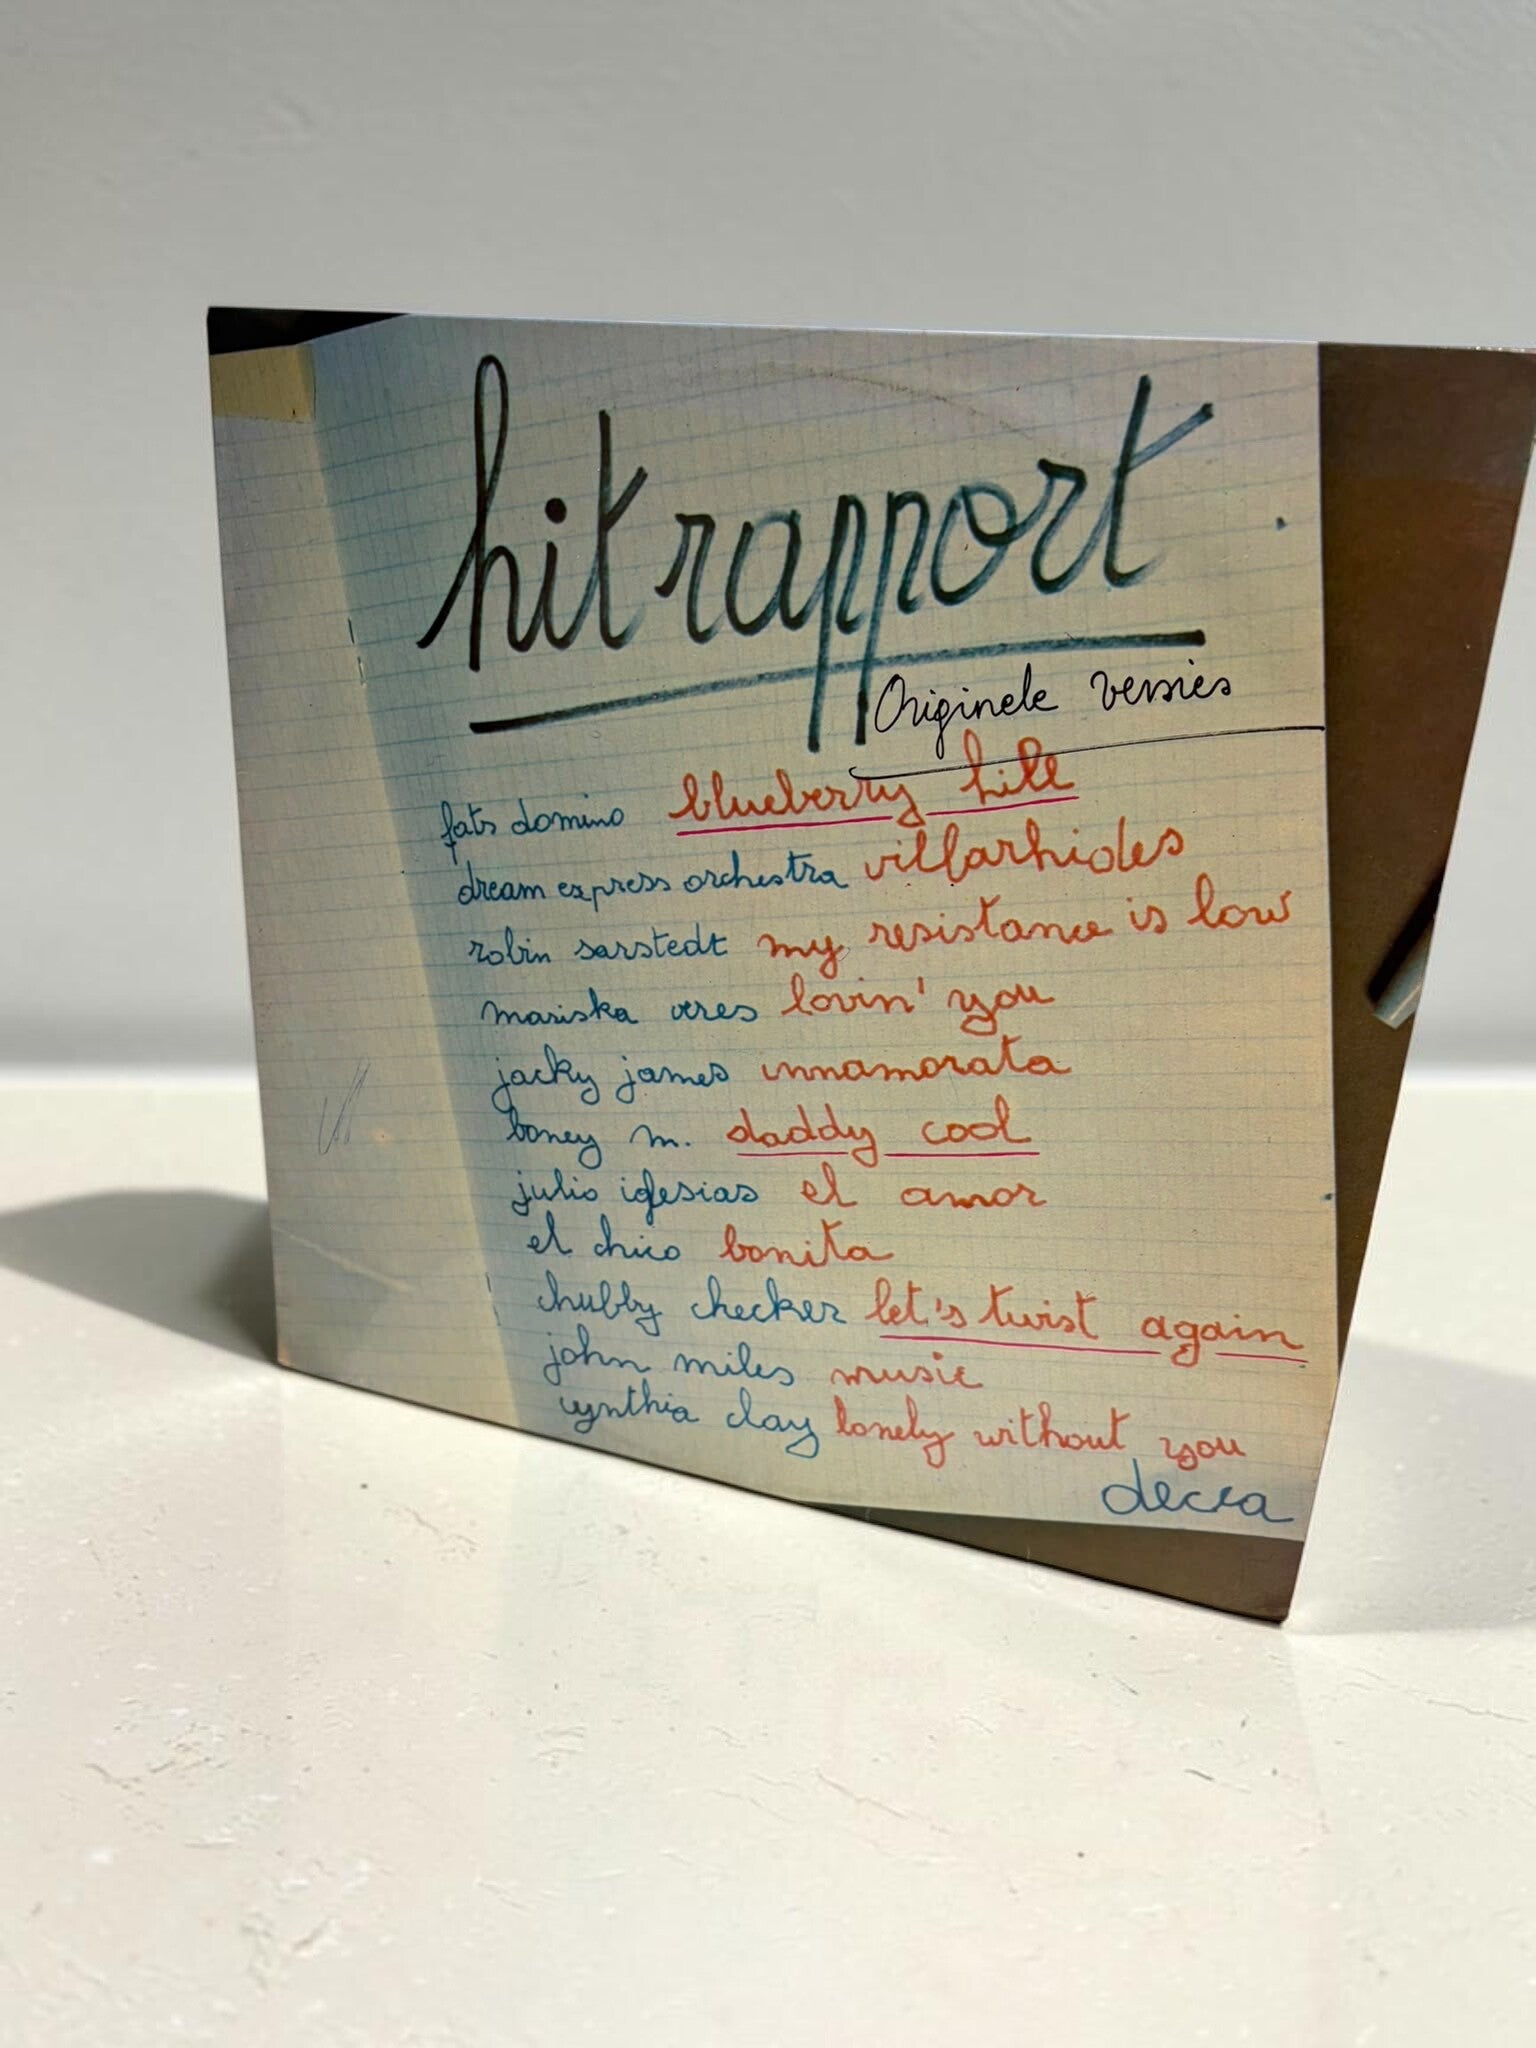 hit rapport
Originele versies
fats domino blueberry hill
dream express orchestra villarhides
robin sarstedt my resistance is low
mariska veres lovin' you
jacky james innamorata
boney m. daddy cool
julio iglesias el amor
el chico bonita
chubby checker let's twist again
john miles music
cynthia clay lonely without you
decca